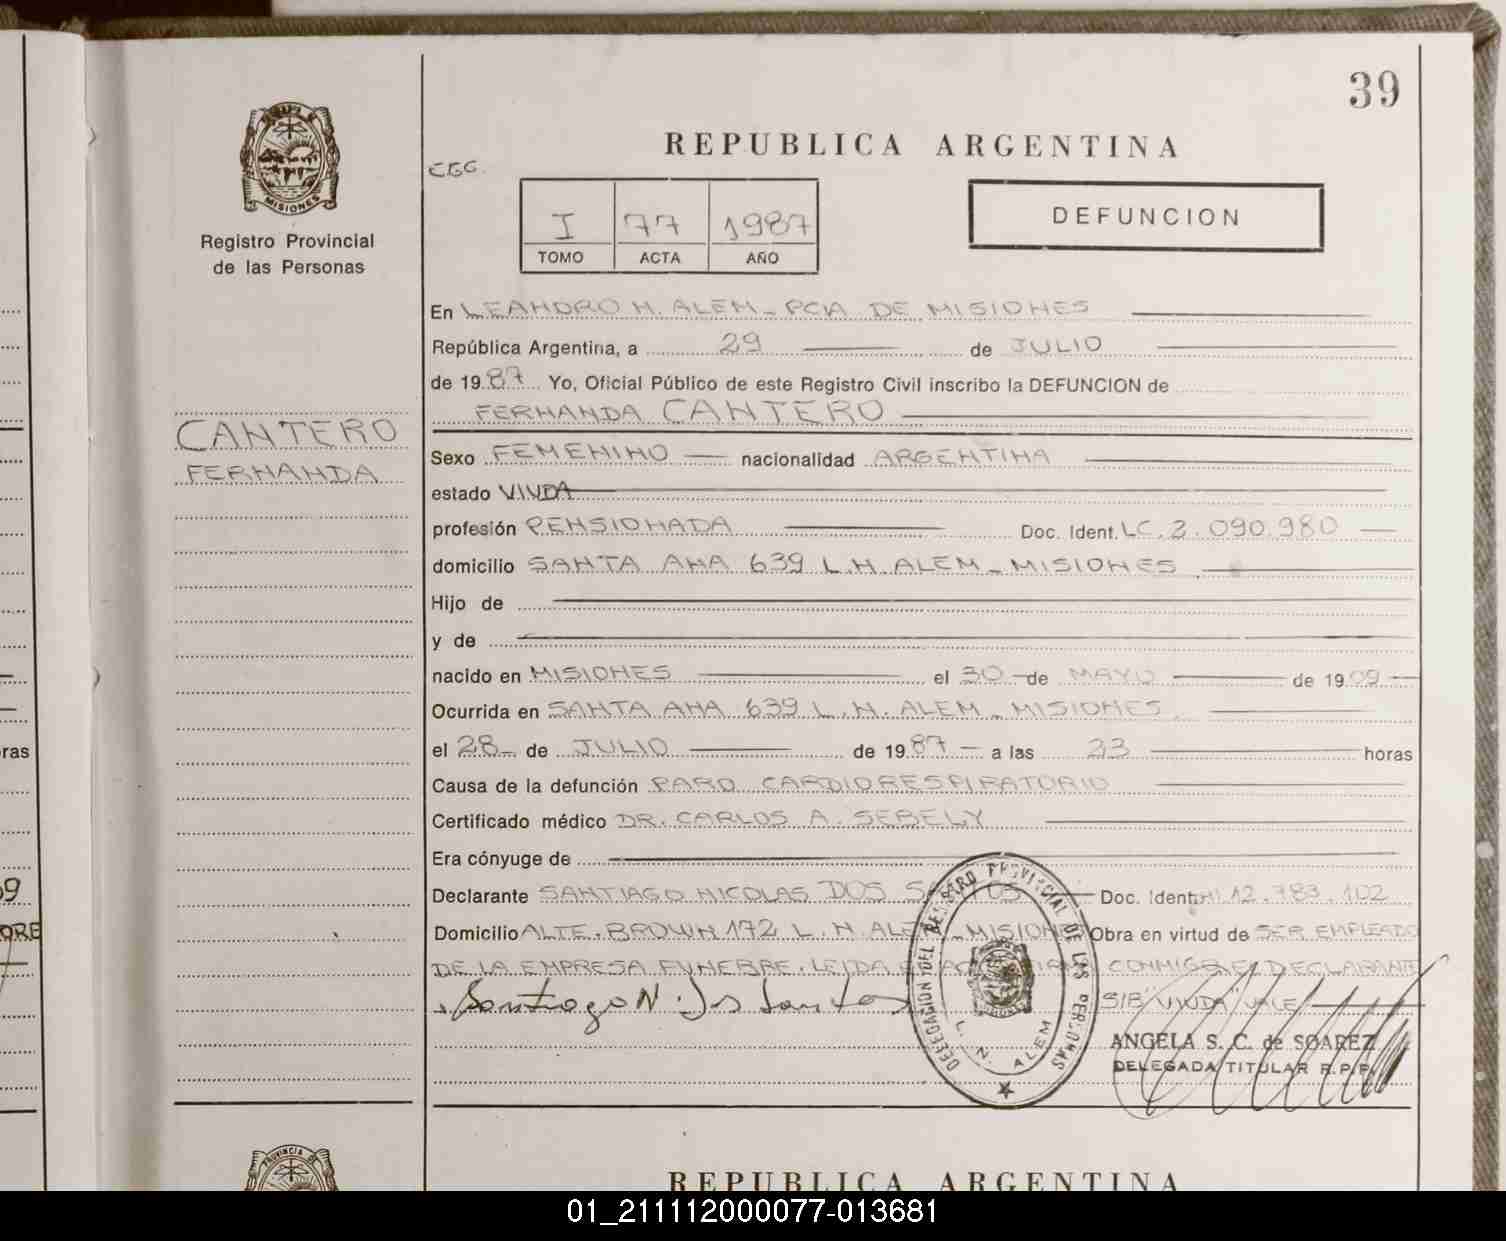 39
REPUBLICA ARGENTINA
MISIONES
Registro Provincial
de las Personas
I 77 1987
TOMO ACTA AÑO
DEFUNCION
En LEANDRO N. ALEM - PCIA DE MISIONES
República Argentina, a 29 de JULIO
de 1987 Yo, Oficial Público de este Registro Civil inscribo la DEFUNCION de
FERNANDA CANTERO
CANTERO
FERNANDA
Sexo FEMENINO nacionalidad ARGENTINA
estado VIUDA
profesión PENSIONADA Doc. Ident. LC. 2.090.980
domicilio SANTA ANA 639 L.N. ALEM - MISIONES
Hijo de
y de
nacido en MISIONES el 30 de MAYO de 1909
Ocurrida en SANTA ANA 639 L.N. ALEM - MISIONES.
el 28 de JULIO de 1987 a las 23 horas
Causa de la defunción PARO CARDIORESPIRATORIO
Certificado médico DR. CARLOS A. SEBELY
Era cónyuge de
Declarante SANTIAGO NICOLAS DOS SANTOS Doc. Ident. 12.783.102
Domicilio ALTE. BROWN 172 L.N. ALEM - MISIONES Obra en virtud de SER EMPLEADO
DE LA EMPRESA FUNEBRE. LEIDA EL ACTA FIRMA CONMIGO EL DECLARANTE
Santiago N. dos Santos S/B "VIUDA" VALE
DELEGACION DEL REGISTRO PROVINCIAL DE LAS PERSONAS
L. N. ALEM
ANGELA S. C. de SOAREZ
DELEGADA TITULAR R.P.P.
PROVINCIA DE
REPUBLICA ARGENTINA
ras
01_211112000077-013681